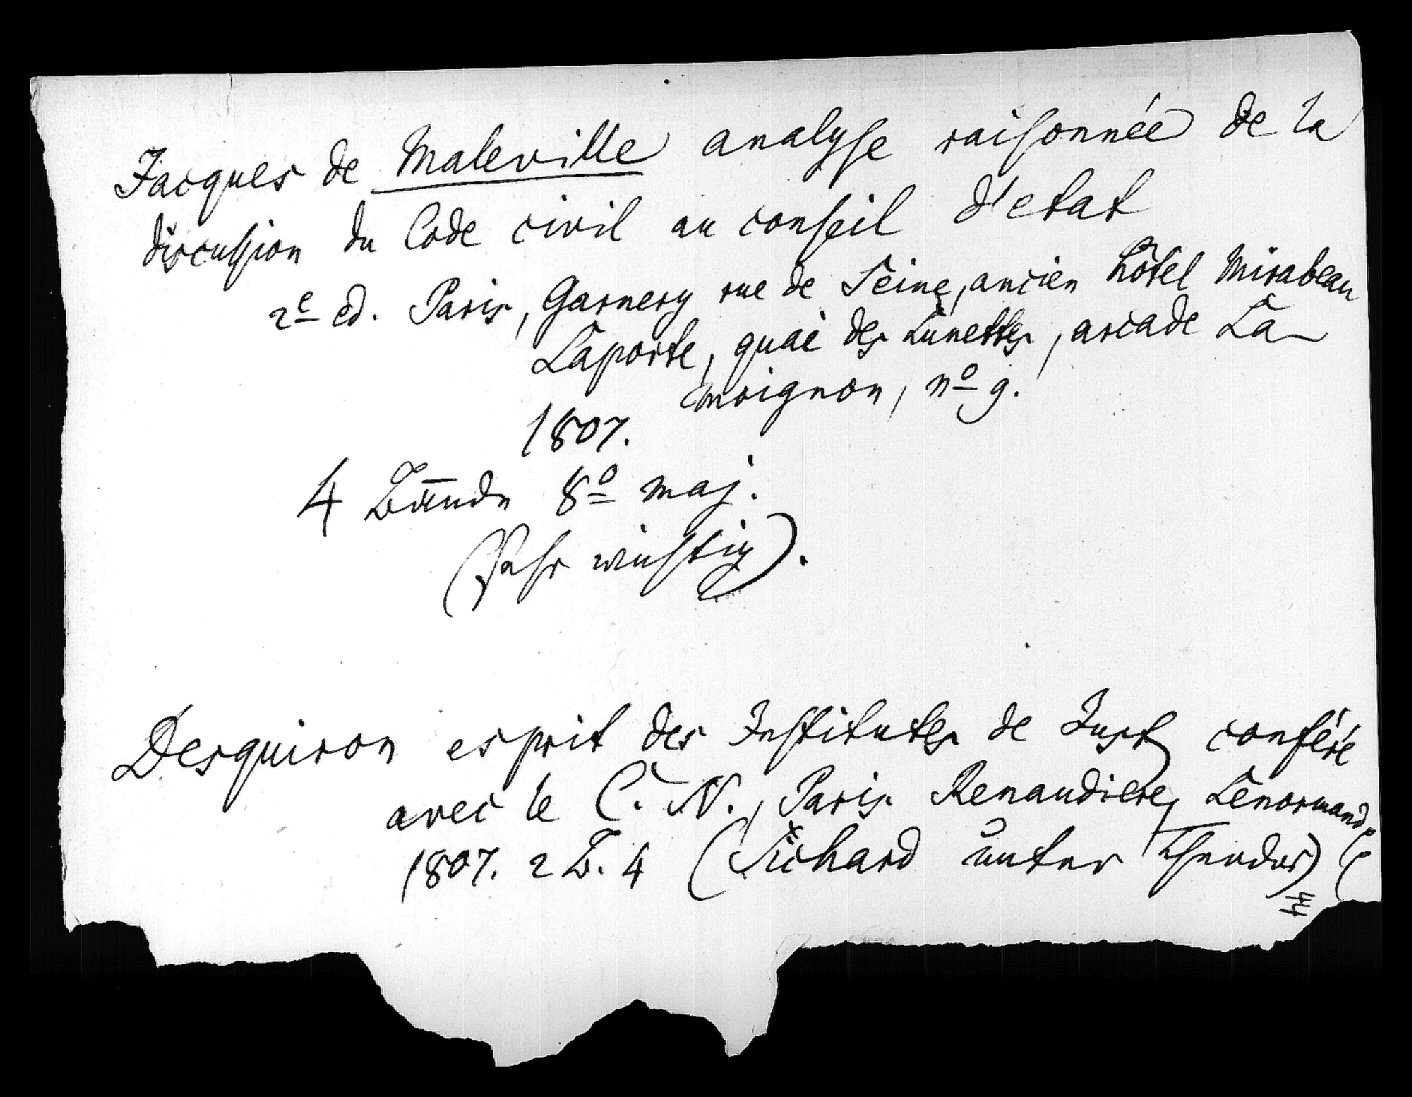 Jacques de Maleville analyse raisonnée de la
discussion du Code civil au conseil d'etat
2e ed. Paris, Garnery rue de Seine, ancien hôtel Mirabeau
Laporte, quai des Lunettes, arcade La-
moignon, no 9.
1807.
4 Bände 8o maj.
(Sehr wichtig).
Desquiron esprit des Institutes de Just conféré
avec le C. N., Paris Renaudiere, Lenormand
1807. 2 B. 4 (Sichard unter